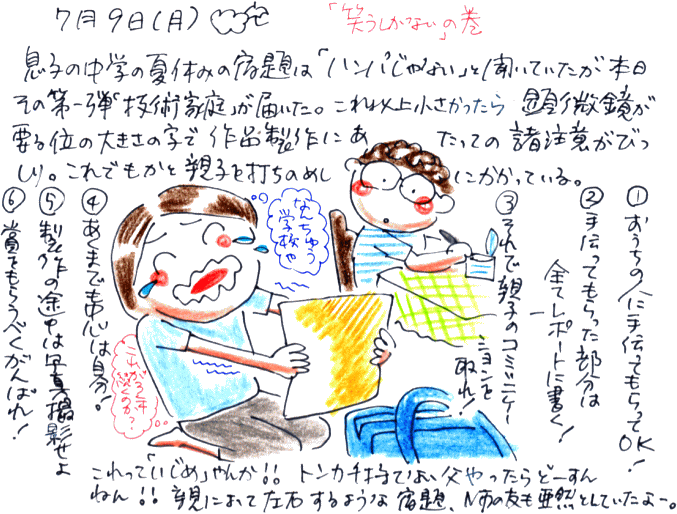 7月9日(月)
「笑うしかない」の巻
息子の中学の夏休みの宿題は「ハンパじゃない」と聞いていたが本日
その第一弾「技術家庭」が届いた。これ以上小さかったら顕微鏡が
要る位の大きさの字で作品製作にあたっての諸注意がびっ
しり。これでもかと親子を打ちのめしにかかっている。
①おうちの人に手伝ってもらってOK!
②手伝ってもらった部分は
全てレポートに書く!
③それで親子のコミュニケー
ションを
取れ!
④あくまでも中心は自分!
⑤製作の途中は写真撮影せよ
⑥賞をもらうべくがんばれ!
なんちゅう
学校や
これがろく年
これって「いじめ」やんか!!トンカチ持てない父やったらどーすん
ねん!!親によって左右するような宿題、N市の友も亜然としていたよー。